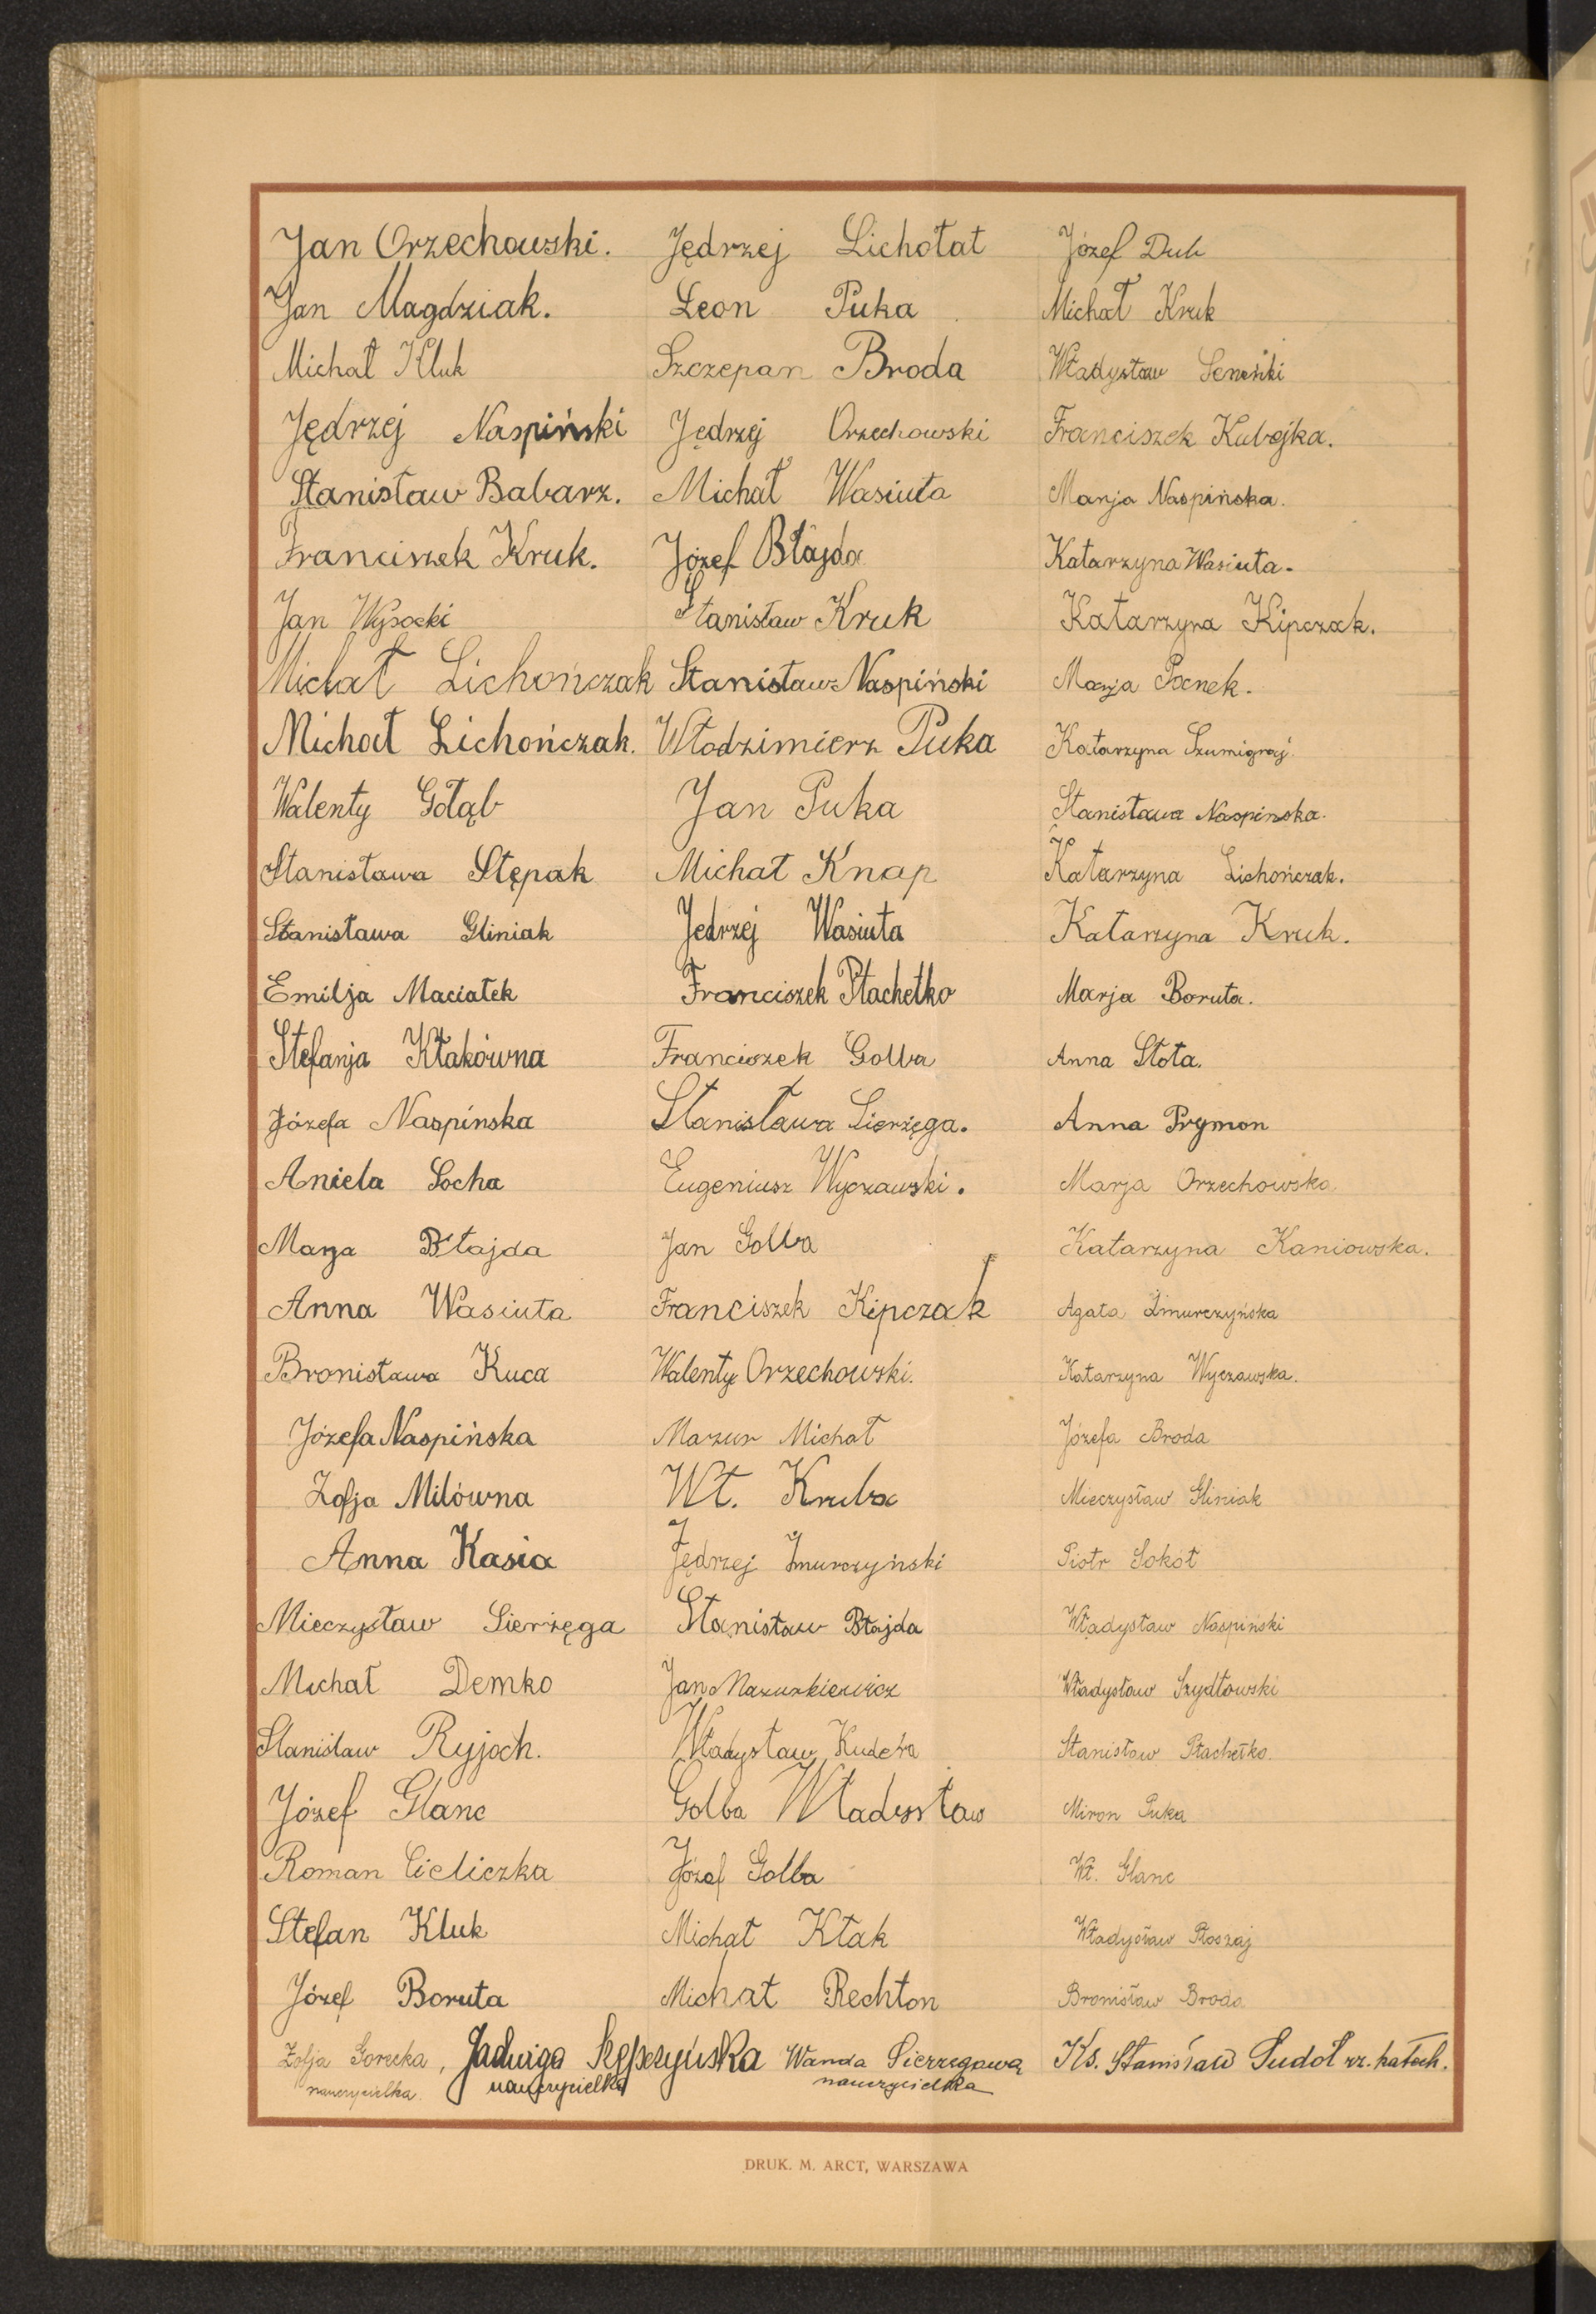 Jan Orzechowski.
Jan Magdziak.
Michał Kluk
Jędrzej Naspiński
Stanisław Babarz.
Franciszek Kruk.
Jan Wysocki
Michał Lichończak
Michał Lichończak.
Walenty Gołąb
Stanisława Stępak
Stanisława Gliniak
Emilja Maciałek
Stefanja Kłakówna
Józefa Naspińska
Aniela Socha
Marja Błajda
Anna Wasiuta
Bronisława Kuca
Józefa Naspińska
Zofja Milówna
Anna Kasia
Mieczysław Sierżęga
Michał Demko
Stanisław Ryjoch.
Józef Glanc
Roman Cieliczka
Stefan Kluk
Józef Boruta
Jędrzej Lichołat
Leon Puka
Szczepan Broda
Jędrzej Orzechowski
Michał Wasiuta
Józef Błajda
Stanisław Kruk
Stanisław Naspiński
Włodzimierz Puka
Jan Puka
Michał Knap
Jedrzej Wasiuta
Franciszek Płachetko
Franciszek Golba
Stanisława Sierżęga.
Eugeniusz Wyczawski.
Jan Golba
Franciszek Kipczak
Walenty Orzechowski.
Mazur Michał
Wł. Kruba
Jędrzej Żmurczyński
Stanisław Błajda
Jan Mazurkiewicz
Władysław
Golba Władysław
Józef Golba
Michał Kłak
Michał Rechton
Józef Dub
Michał Kruk
Władysław
Franciszek Kubejka.
Marja Naspińska.
Katarzyna Wasiuta.
Katarzyna Kipczak.
Marja
Katarzyna Szumigraj.
Stanisława Naspinska.
Katarzyna Lichończak.
Katarzyna Kruk.
Marja Boruta.
Anna Słota.
Anna Prymon
Marja Orzechowska
Katarzyna Kaniowska.
Agata Żmurczyńska
Katarzyna Wyczawska.
Józefa Broda
Mieczysław Gliniak
Piotr Sokół
Władysław Naspiński
Władysław Szydłowski
Stanisław Płachetko.
Miron Puka
Wł. Glanc
Władysław Płoszaj
Bronisław Broda
Zofja Gorecka, Jadwiga Wanda Sierzęgawa Ks. Stanisław Sudoł rz. katoch.
nauczycielka. nauczycielka nauczycielka
DRUK. M. ARCT, WARSZAWA